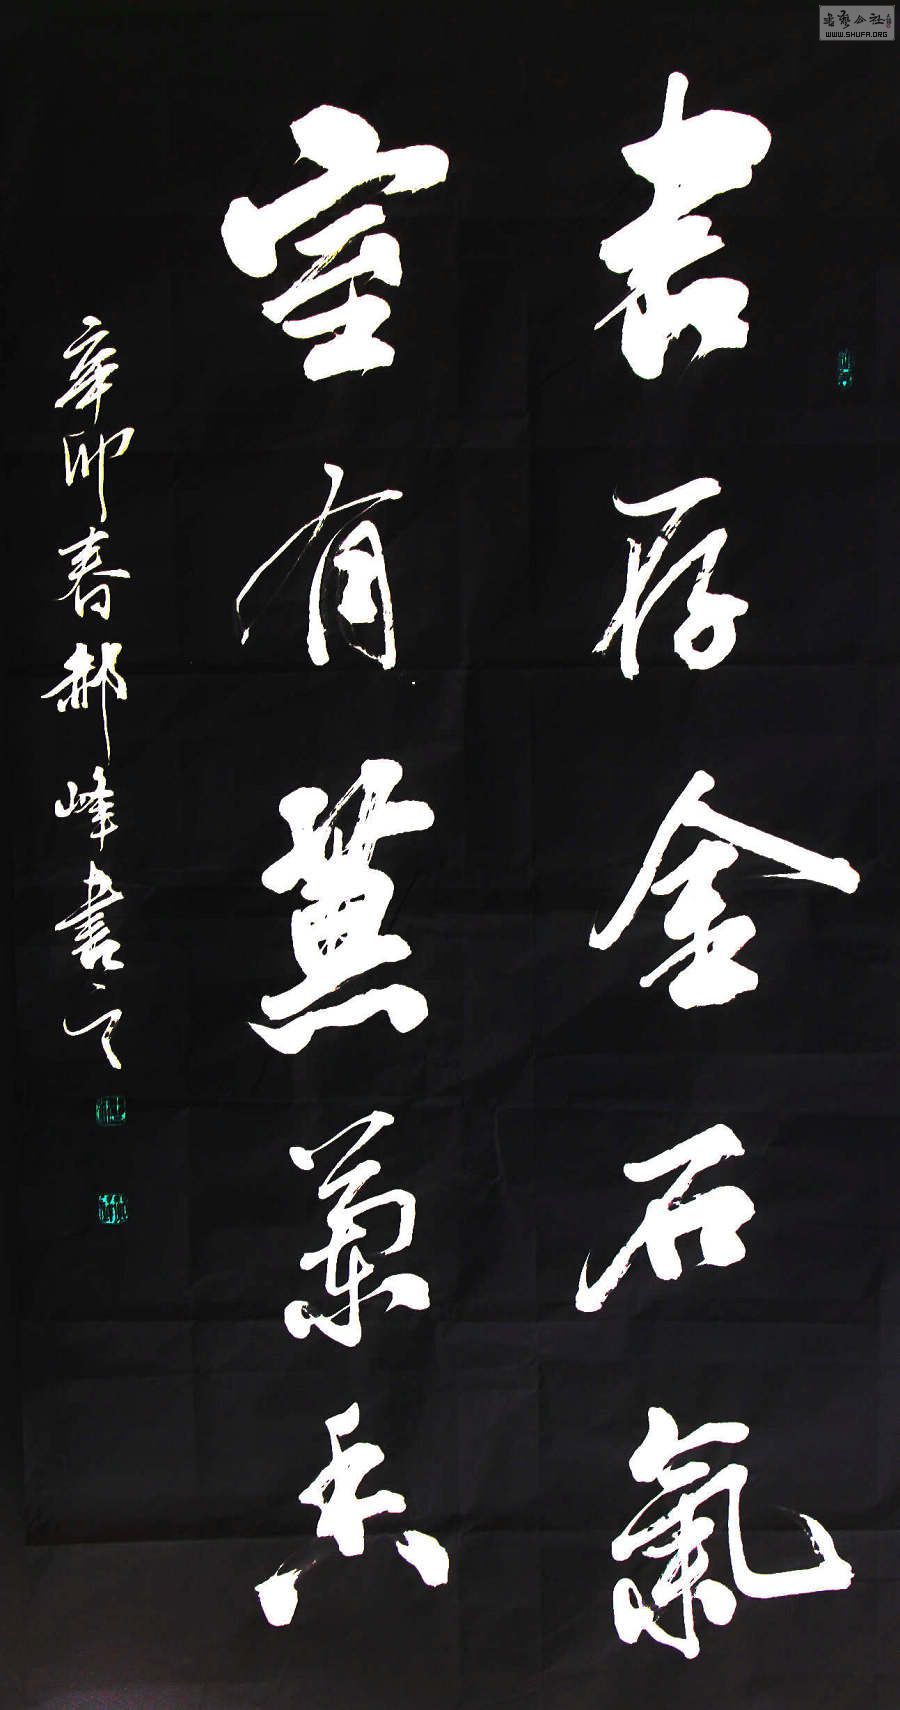 書存金石氣
室有蕙蘭香
辛卯春郝峰書之
WWW.SHUFA.ORG